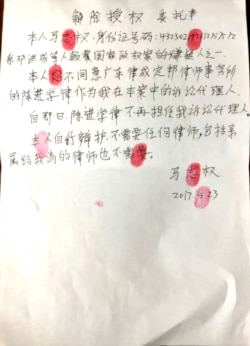 解除授权委托书
本人马志权，身份证号码：
系邓洪成等人颠覆国家政权案的嫌疑人之一，
本人 不同意广东律成定邦律师事务所
的陈进学律作为我在本案中的诉讼代理人。
自即日陈进学律不再担任我诉讼代理人。
本人自行辩护，不需要任何律师，包括家
属给我请的律师也不需要。
马志权
2017.5.23